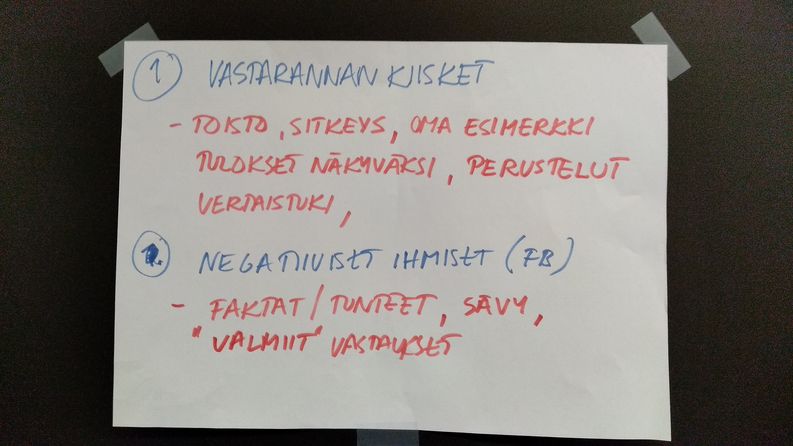 1 VASTARANNAN KIISKET
- TOISTO, SITKEYS, OMA ESIMERKKI
TULOKSET NÄKYVÄKSI, PERUSTELUT
VERTAISTUKI,
2. NEGATIIVISET IHMISET (FB)
- FAKTAT / TUNTEET, SÄVY,
"VALMIIT" VASTAUKSET